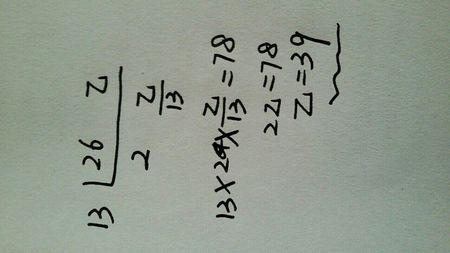 13 | 26 Z
2 Z/13
13 × 2 × Z/13 = 78
2Z = 78
Z = 39